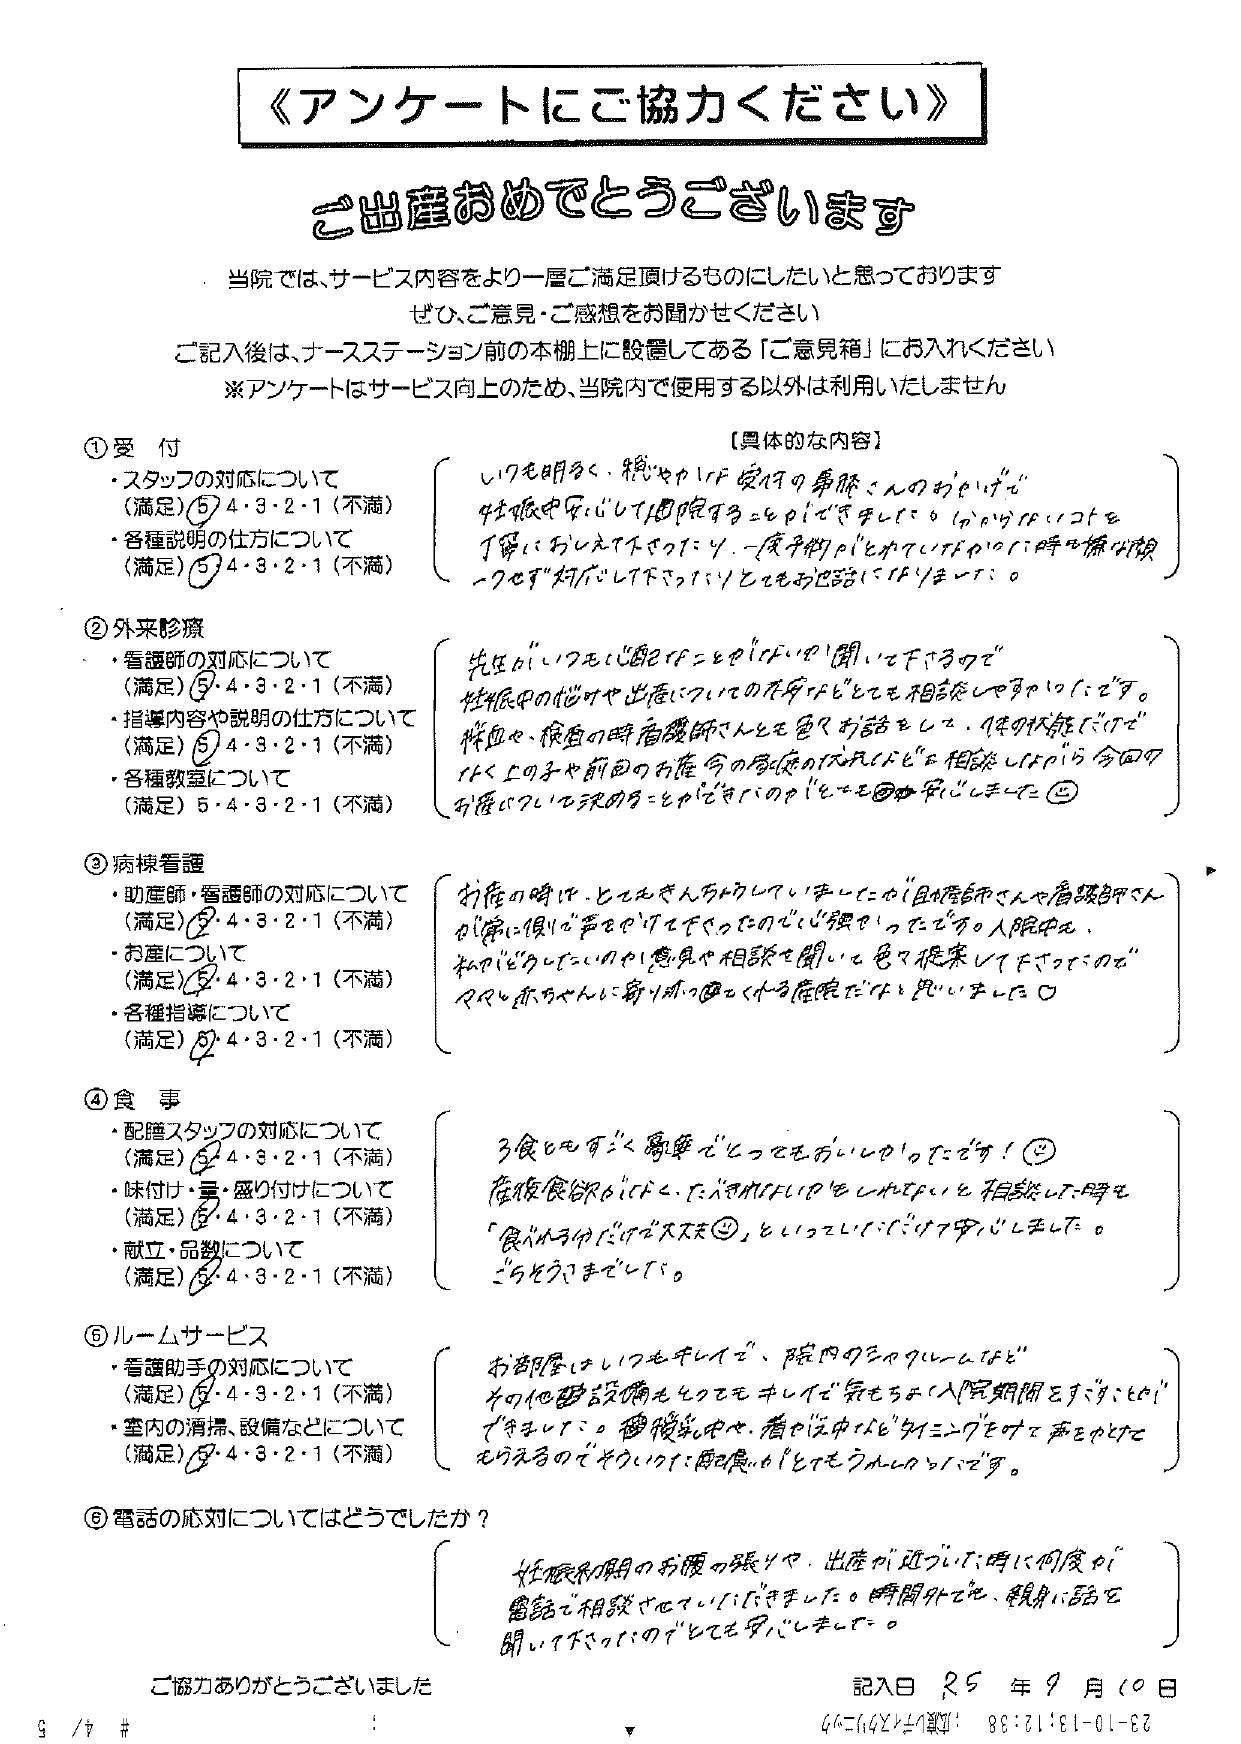 《アンケートにご協力ください》
ご出産おめでとうございます
当院では、サービス内容をより一層ご満足頂けるものにしたいと思っております
ぜひ、ご意見・ご感想をお聞かせください
ご記入後は、ナースステーション前の本棚上に設置してある「ご意見箱」にお入れください
※アンケートはサービス向上のため、当院内で使用する以外は利用いたしません
【具体的な内容】
①受　付
・スタッフの対応について
（満足）5・4・3・2・1（不満）
・各種説明の仕方について
（満足）5・4・3・2・1（不満）
いつも明るく、穏やかな受付の事務さんのおかげで
妊娠中安心して通院することができました。分からないコトを
丁寧におしえて下さったり、一度予約がとれていなかった時も嫌な顔
一つせず対応して下さったりとてもお世話になりました。
②外来診療
・看護師の対応について
（満足）5・4・3・2・1（不満）
・指導内容や説明の仕方について
（満足）5・4・3・2・1（不満）
・各種教室について
（満足）5・4・3・2・1（不満）
先生がいつも心配なことがないか聞いて下さるので
妊娠中の悩みや出産についての不安などとても相談しやすかったです。
採血や、検査の時看護師さんとも色々お話をして、体の状態だけで
なく上の子や前回のお産今の家庭の状況なども相談しながら今回の
お産について決めることができたのがとても安心しました☺
③病棟看護
・助産師・看護師の対応について
（満足）5・4・3・2・1（不満）
・お産について
（満足）5・4・3・2・1（不満）
・各種指導について
（満足）5・4・3・2・1（不満）
お産の時は、とてもきんちょうしていましたが助産師さんや看護師さん
が常に側で声をかけて下さったので心強かったです。入院中も、
私がどうしたいのか意見や相談を聞いて色々提案して下さったので
ママと赤ちゃんに寄りそってくれる産院だなと思いました♡
④食　事
・配膳スタッフの対応について
（満足）5・4・3・2・1（不満）
・味付け・量・盛り付けについて
（満足）5・4・3・2・1（不満）
・献立・品数について
（満足）5・4・3・2・1（不満）
3食ともすごく豪華でとってもおいしかったです！☺
産後食欲がなく、たべきれないかもしれないと相談した時も
「食べれる分だけで大丈夫☺」といっていただけて安心しました。
ごちそうさまでした。
⑤ルームサービス
・看護助手の対応について
（満足）5・4・3・2・1（不満）
・室内の清掃、設備などについて
（満足）5・4・3・2・1（不満）
お部屋はいつもキレイで、院内のシャワールームなど
その他設備もとってもキレイで気もちよく入院期間をすごすことが
できました。授乳中や、着がえ中などタイミングをみて声をかけて
もらえるのでそういった配慮がとてもうれしかったです。
⑥電話の応対についてはどうでしたか？
妊娠初期のお腹の張りや、出産が近づいた時に何度か
電話で相談させていただきました。時間外でも、親身に話を
聞いて下さったのでとても安心しました。
ご協力ありがとうございました
記入日 R5 年 9 月 10 日
23-10-13;12:38 ;広瀬レディスクリニック
# 4/ 5